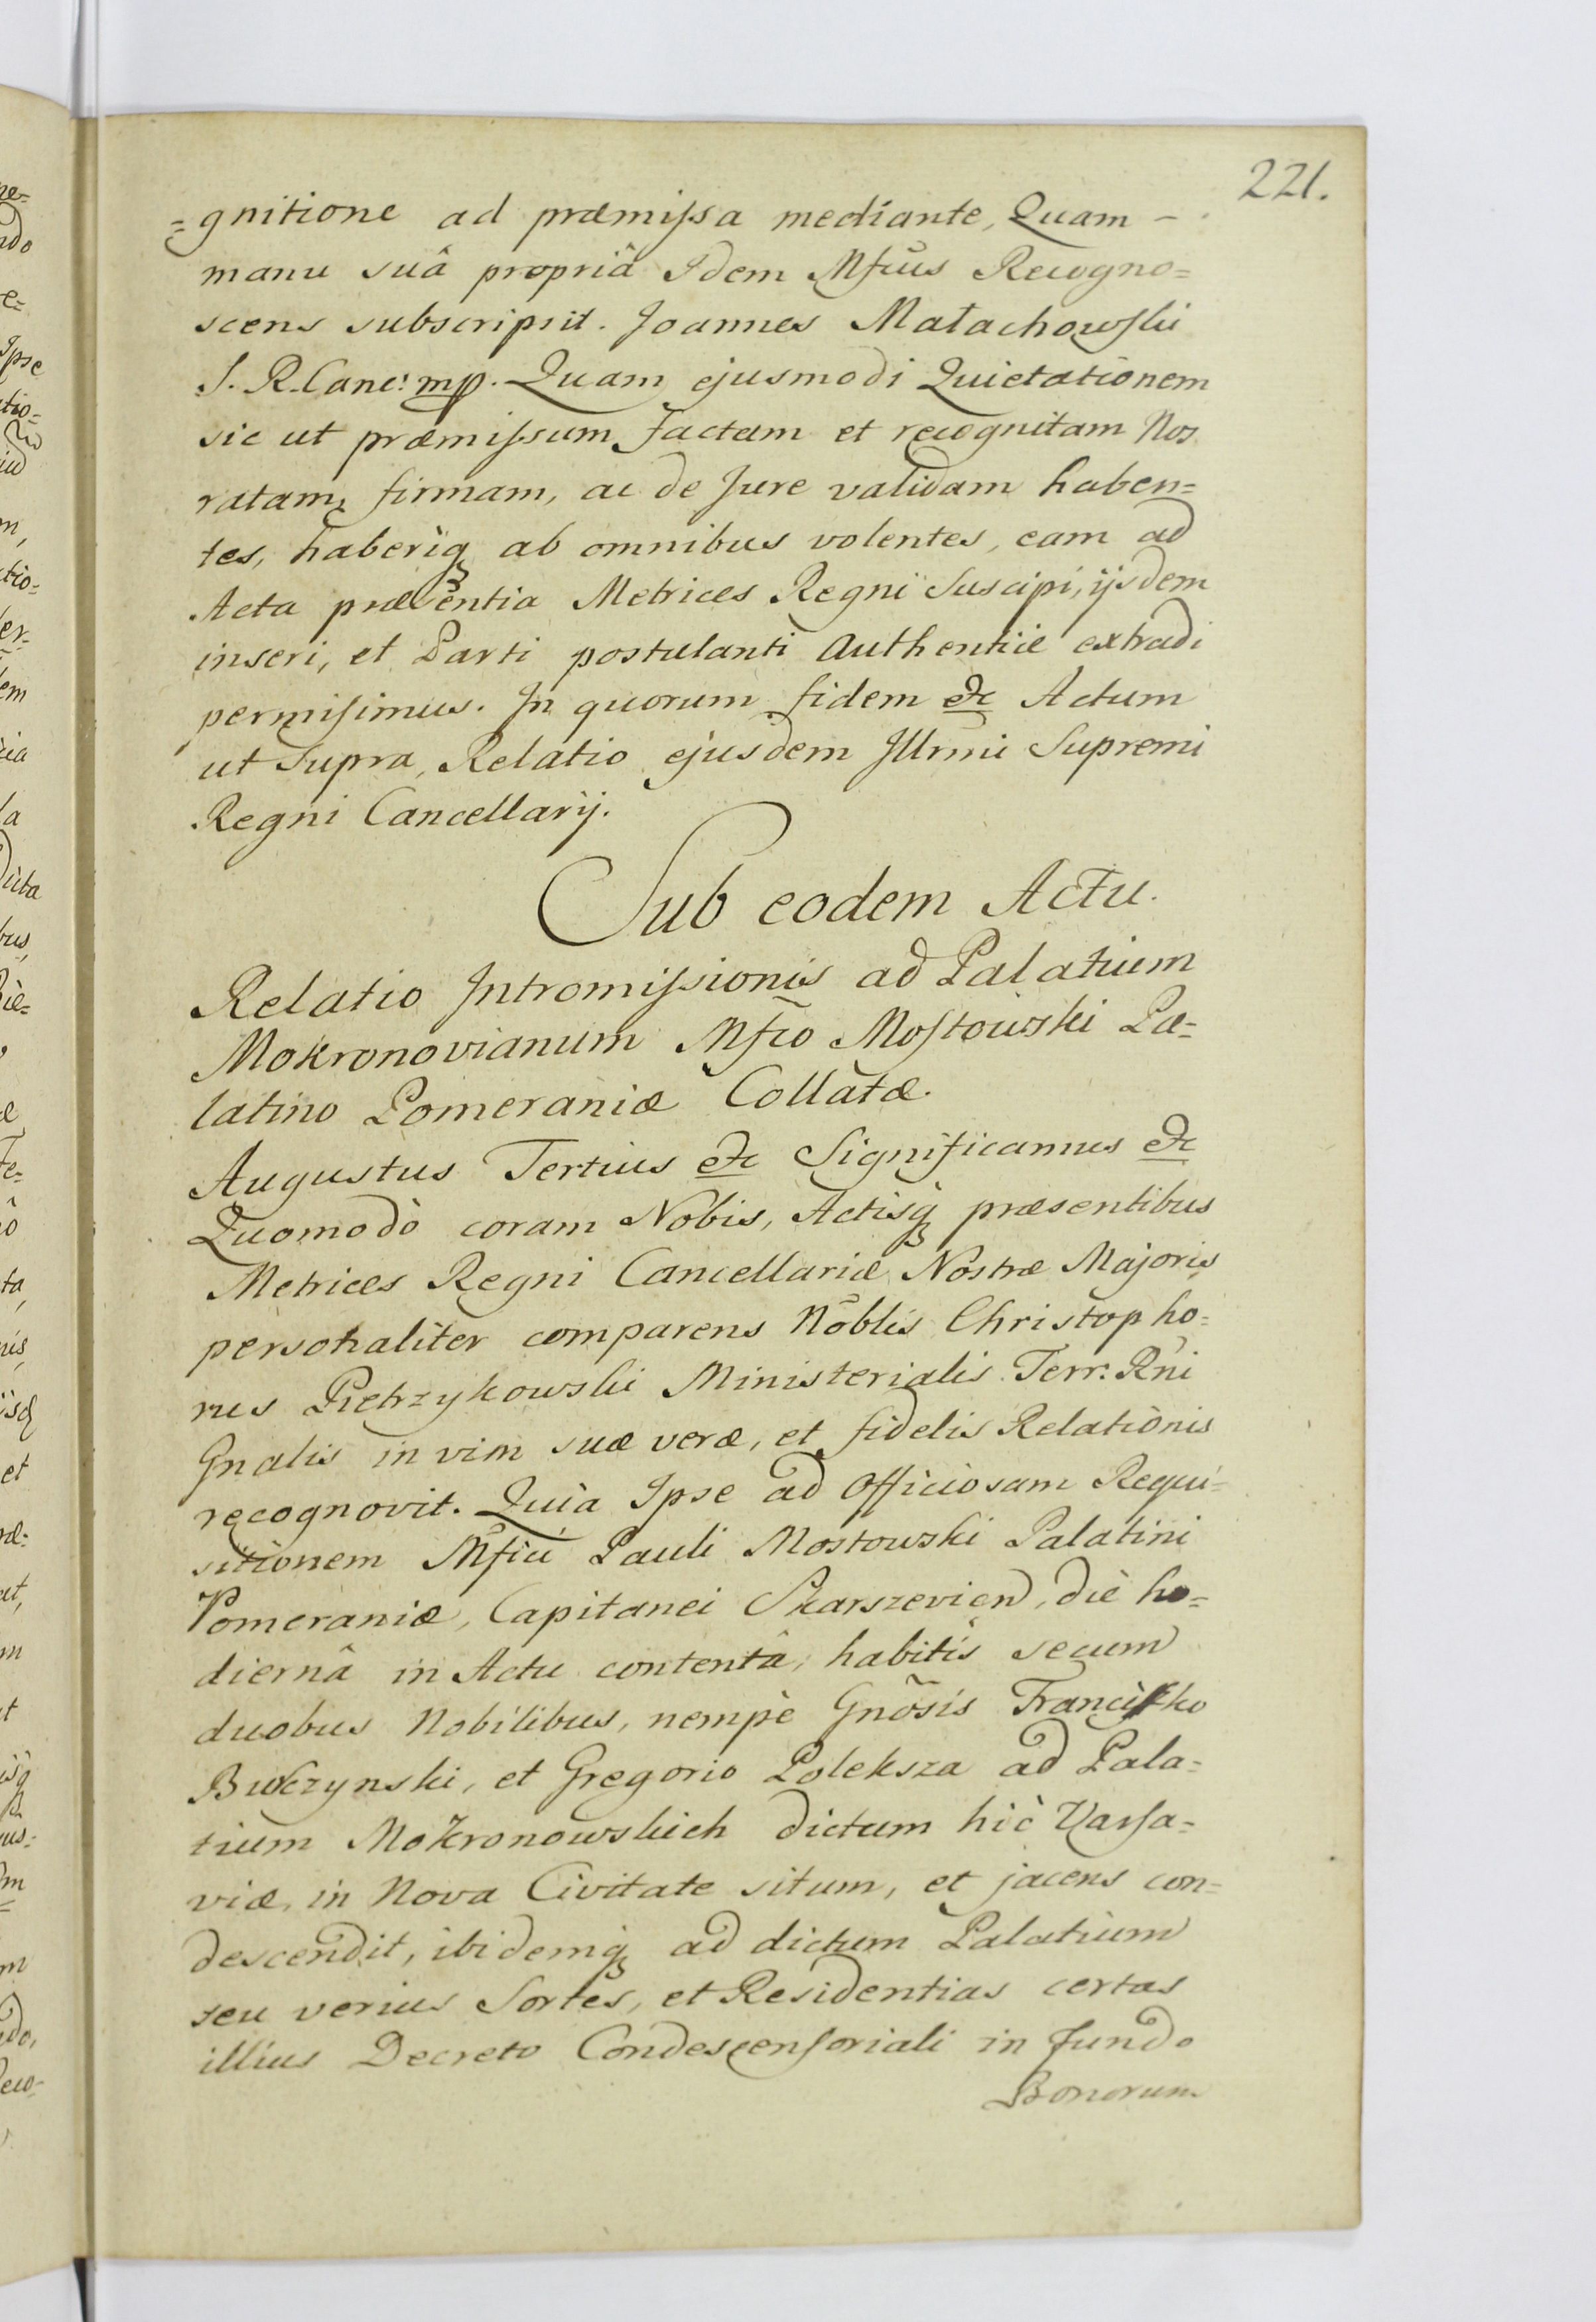 221.
=gnitione ad præmissa mediante, Quam -
manu suâ propriâ Idem Mfcus Recogno=
scens subscripsit. Joannes Małachowski
S. R. Canc: mp. Quam ejusmodi Quietationem
sic ut præmissum factam et recognitam Nos
ratam, firmam, ac de Jure validam haben=
tes, haberiq ab omnibus volentes, eam ad
Acta præsentia Metrices Regni Suscipi, ijsdem
inseri, et Parti postulanti Authentice extradi
permisimus. In quorum fidem etc Actum
ut Supra, Relatio ejusdem Illrmi Supremi
Regni Cancellarij.
Sub eodem Actu.
Relatio Intromissionis ad Palatium
Mokronovianum Mfco Mostowski Pa=
latino Pomeraniæ Collatæ.
Augustus Tertius etc Significamus etc
Quomodò coram Nobis, Actisq præsentibus
Metrices Regni Cancellariæ Nostræ Majoris
personaliter comparens Nõblis Christopho=
rus Pietrzykowski Ministerialis Terr: Rni
Gnalis in vim suæ veræ, et fidelis Relationis
recognovit. Quia Ipse ad Officiosam Requi=
sitionem Mfici Pauli Mostowski Palatini
Pomeraniæ, Capitanei Skarszevien, die ho=
diernâ in Actu contentâ, habitis secum
duobus Nobilibus, nempè Gnõsis Francisko
Bukczynski, et Gregorio Poleksza ad Pala=
tium Mokronowskich dictum hic Varsa=
viæ, in Nova Civitate situm, et jacens con=
descendit, ibidemq ad dictum Palatium
seu verius Sortes, et Residentias certas
illius Decreto Condescensoriali in fundo
Bonorum